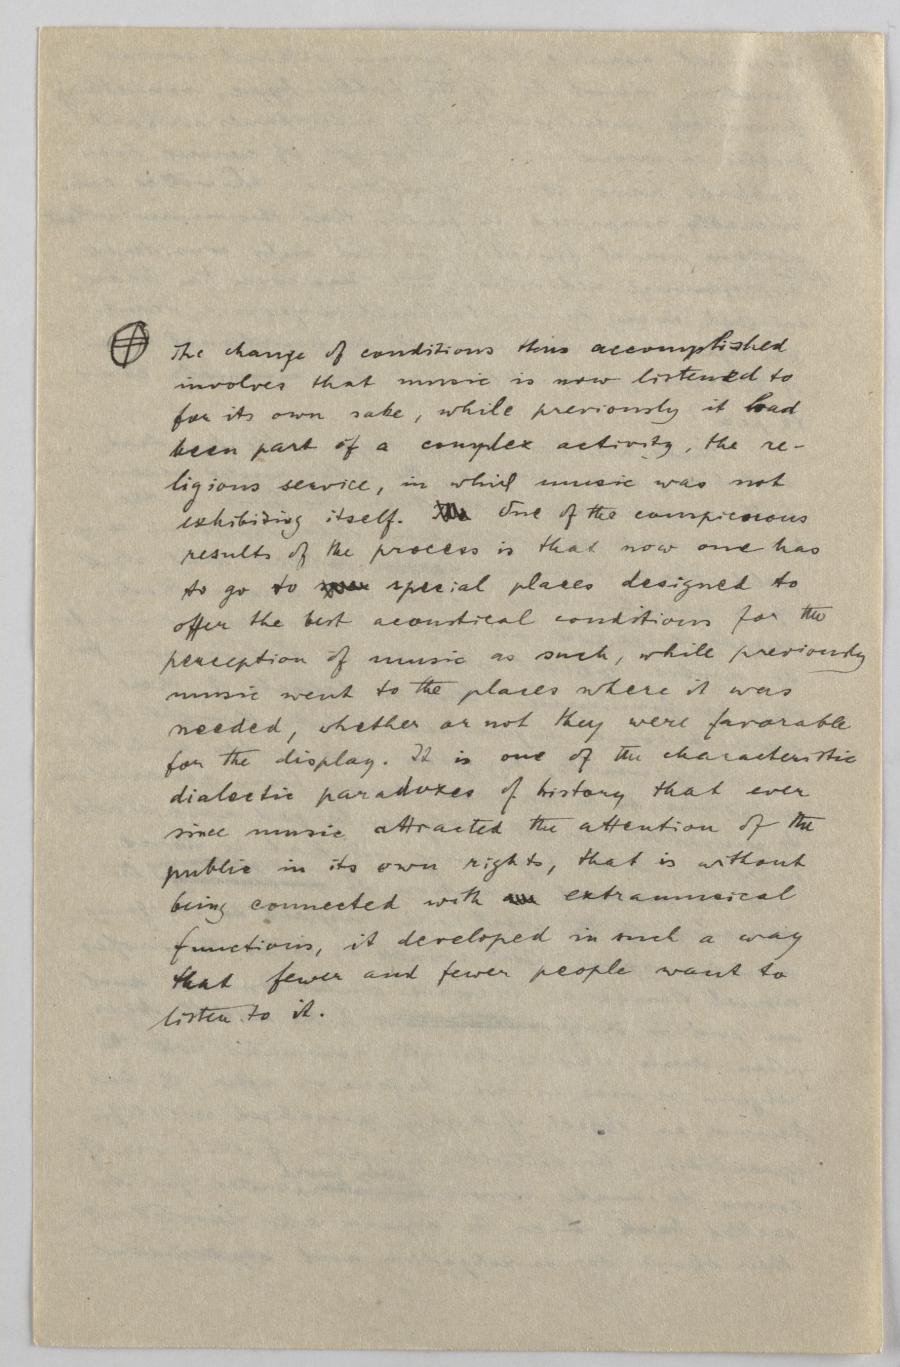 The change of conditions thus accomplished
involves that music is now listened to
for its own sake, while previously it had
been part of a complex activity, the re-
ligious service, in which music was not
exhibiting itself. One of the conspicuous
results of the process is that now one has
to go to special places designed to
offer the best acoustical conditions for the
perception of music as such, while previously
music went to the places where it was
needed, whether or not they were favorable
for the display. It is one of the characteristic
dialectic paradoxes of history that ever
since music attracted the attention of the
public in its own rights, that is without
being connected with extramusical
functions, it developed in such a way
that fewer and fewer people want to
listen to it.